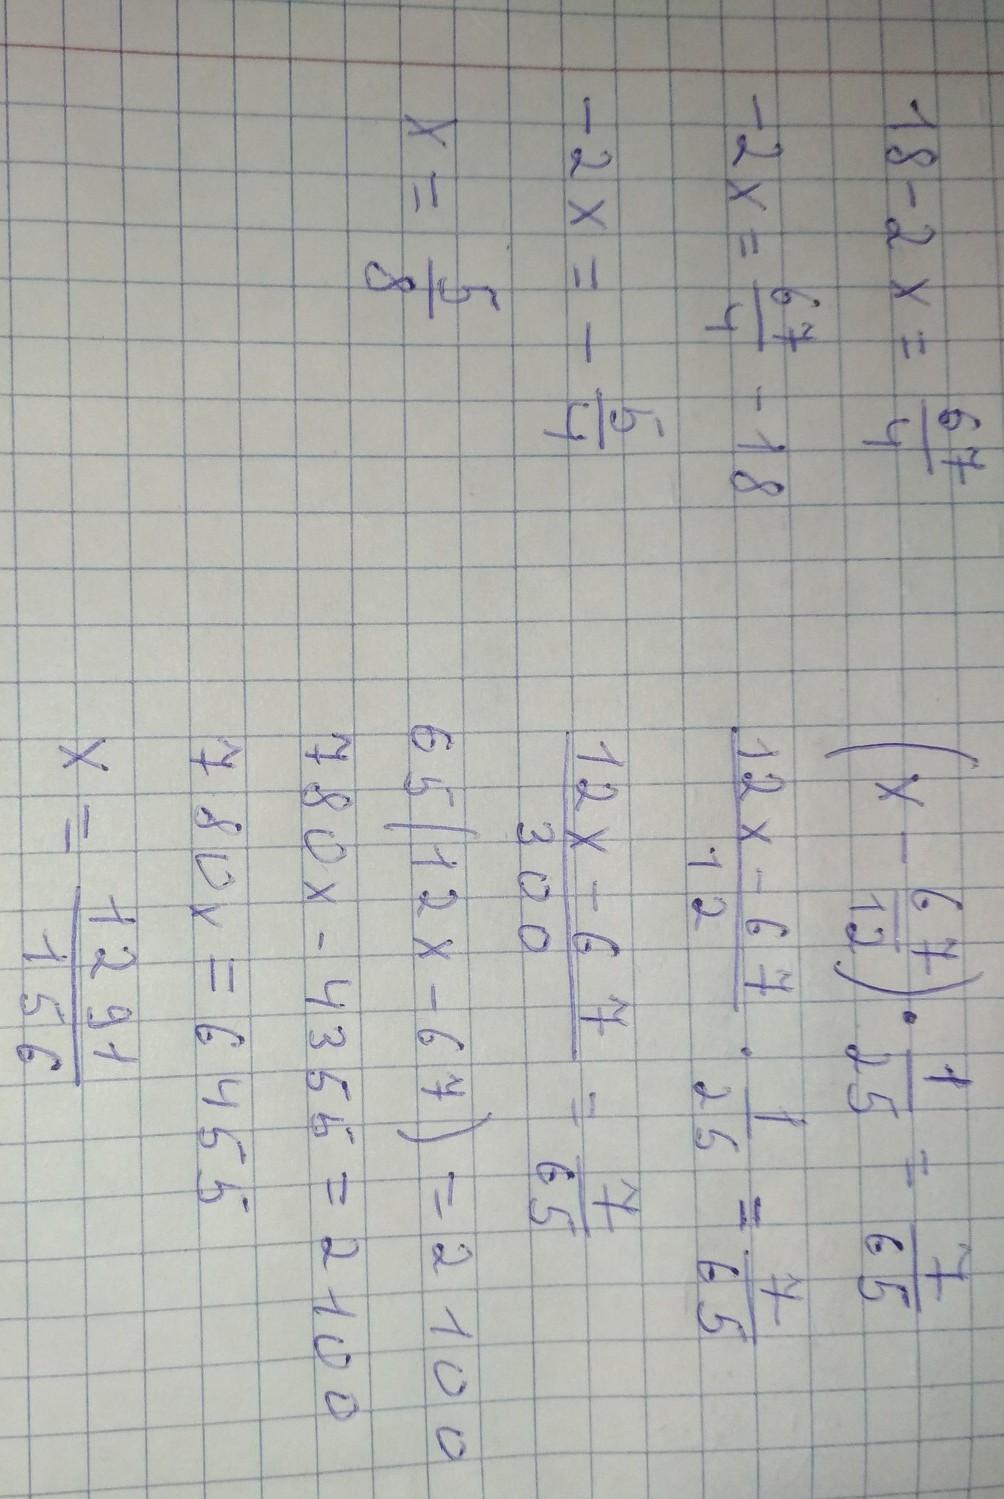 18-2x = 67/4
-2x = 67/4 -18
-2x = - 5/4
x = 5/8
(x - 67/12) · 1/25 = 7/65
12x-67/12 · 1/25 = 7/65
12x-67/300 = 7/65
65(12x-67) = 2100
780x-4355 = 2100
780x = 6455
x = 1291/156